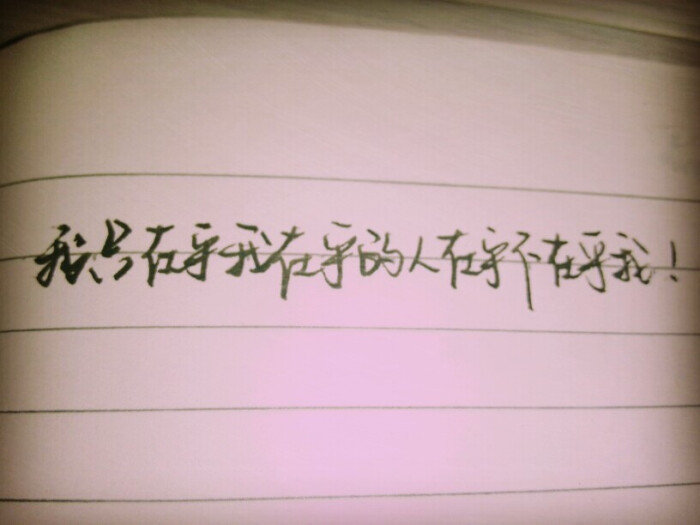 我只在乎我在乎的人在乎不在乎我!